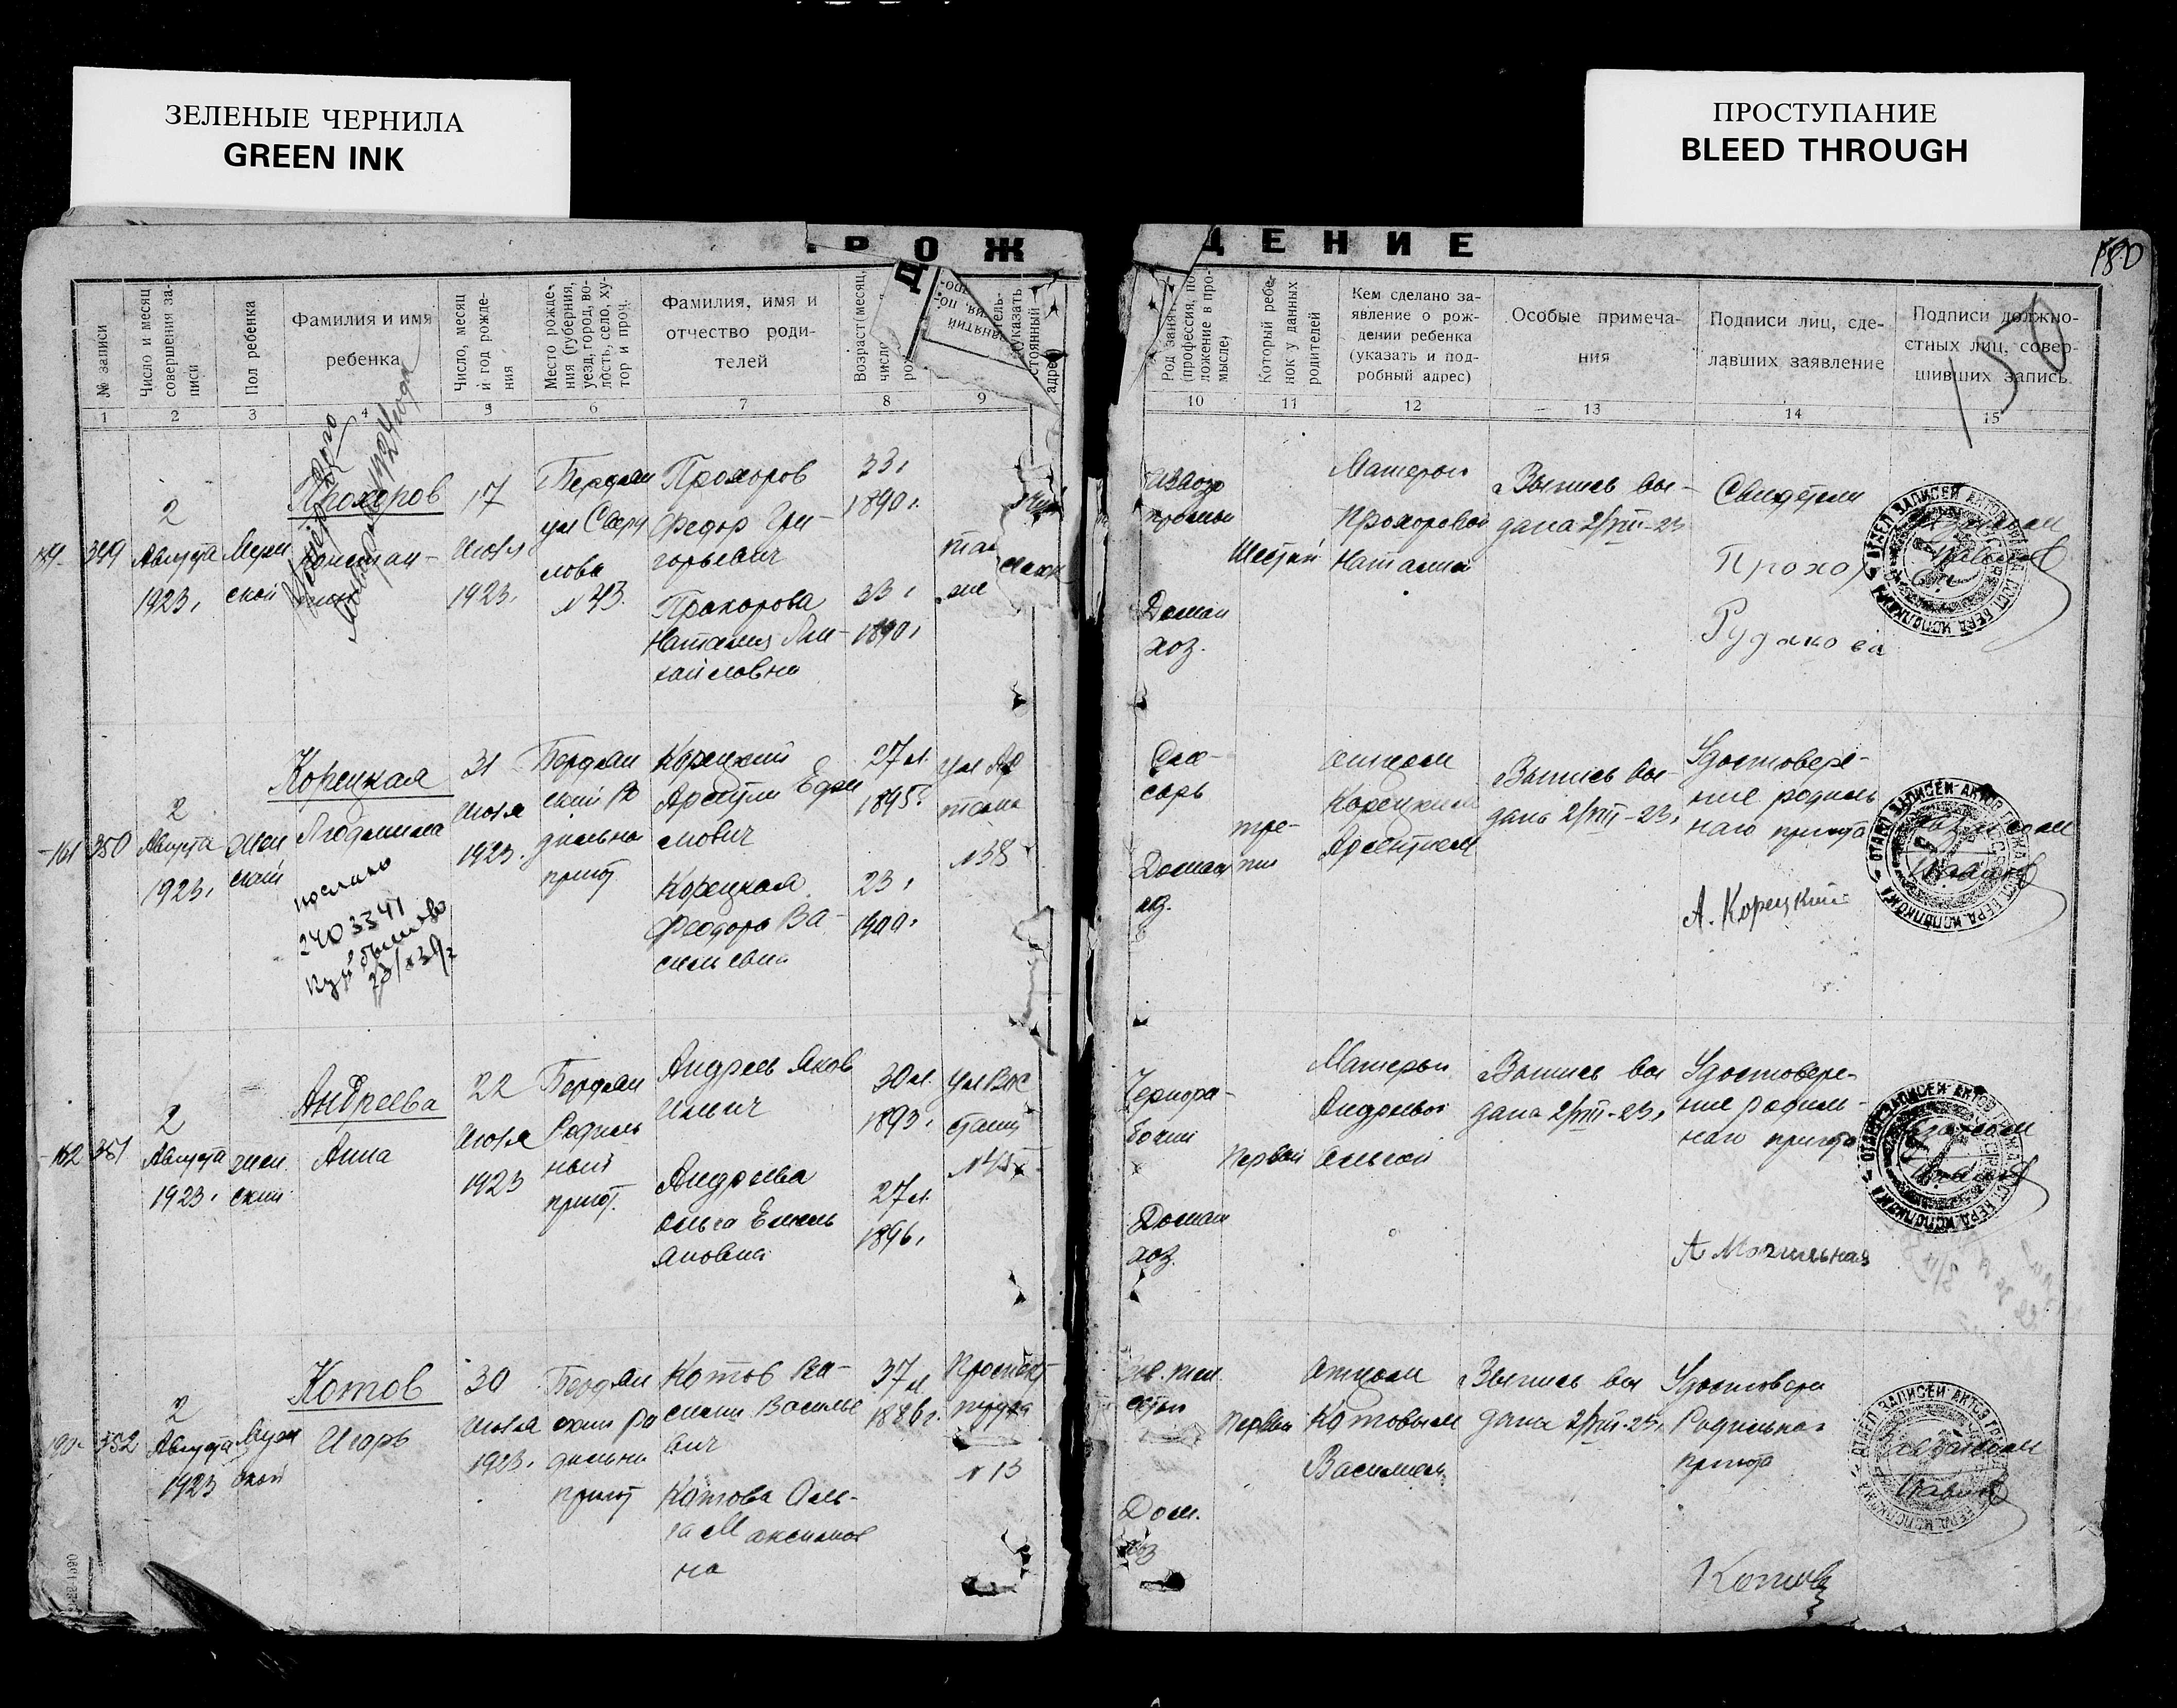 ЗЕЛЕНЫЕ ЧЕРНИЛА
GREEN INK
ПРОСТУПАНИЕ
BLEED THROUGH
РОЖ
ДЕНИЕ
180
130
№ записи
Число и месяц совершения за-
писи
Пол ребенка
Фамилия и имя
ребенка
Число, месяц
и год рожде-
ния
Место рожде-
ния (губерния,
уезд, город, во-
лость, село, ху-
тор и проч.
Фамилия, имя и
отчество роди-
телей
Возраст (месяц,
число
Род заня
(профессия, по-
ложение в про-
мысле)
Который ребе-
нок у данных
родителей
Кем сделано за-
явление о рож-
дении ребенка
(указать и под-
робный адрес)
Особые примеча-
ния
Подписи лиц, сде-
лавших заявление
Подписи должно-
стных лиц, совер-
шивших запись
1
2
3
4
5
6
7
8
9
10
11
12
13
14
15
349
2
Августа
1923г
Муж
ской
Прохоров
Констан-
тин
17
Июля
1923г
Бердян
ул Сверд
лова
№ 43
Прохоров
Федор Гри-
горьевич
Прохорова
Наталия Ми-
хайловна
33г
1890г.
33г
1890г
там
же
Домаш
хоз.
Шестой
Матерью
Прохоровой
Наталией
Выпись вы-
дана 2/VIII-23
Свидетели
Прохор
Рудакова
161
350
2
Августа
1923г
Жен
ский
Корецкая
Людмила
послано
2403341
31
Июля
1923г.
Бердян
ский Ро
дильны
приют
Корецкий
Арсентий Ефи
мович
Корецкая
Феодора Ва-
сильевна
27 л.
1895г.
23г
1900г
№38
Сле-
сарь
Домаш
хоз.
тре-
тий
отцом
Корецким
Арсентием
Выпись вы-
дана 2/VIII-23г
Удостовере-
ние родиль
наго приюта
А. Корецкий
162
351
2
Августа
1923г
жен.
ский
Андреева
Анна
22
Июля
1923
Бердян
Родиль
ный
приют.
Андреев Яков
Ильич
Андреева
Ольга Емель
яновна
30л.
1893г
27л.
1896г
ул Вос
стания
№ 45
Чернора-
бочий
Домаш
хоз.
Первый
Матерью
Андреевой
Ольгой
Выпись вы
дана 2/VIII-23г
Удостовере-
ние родиль-
наго приюта
А Могильная
190
352
2
Августа
1923
Муж
ской
Котов
Игорь
30
Июля
1923г
Бердян
ский ро
дильны
приют
Котов Ва-
силий Василье
вич
Котова Оль-
га Максимов
на
37 л.
1886г.
Проспект
труда
№ 13
Дом.
хоз
Первый
отцом
Котовым
Василием
Выпись вы
дана 2/VIII-23г
Удостовере
Родильнаг
приюта
Котов